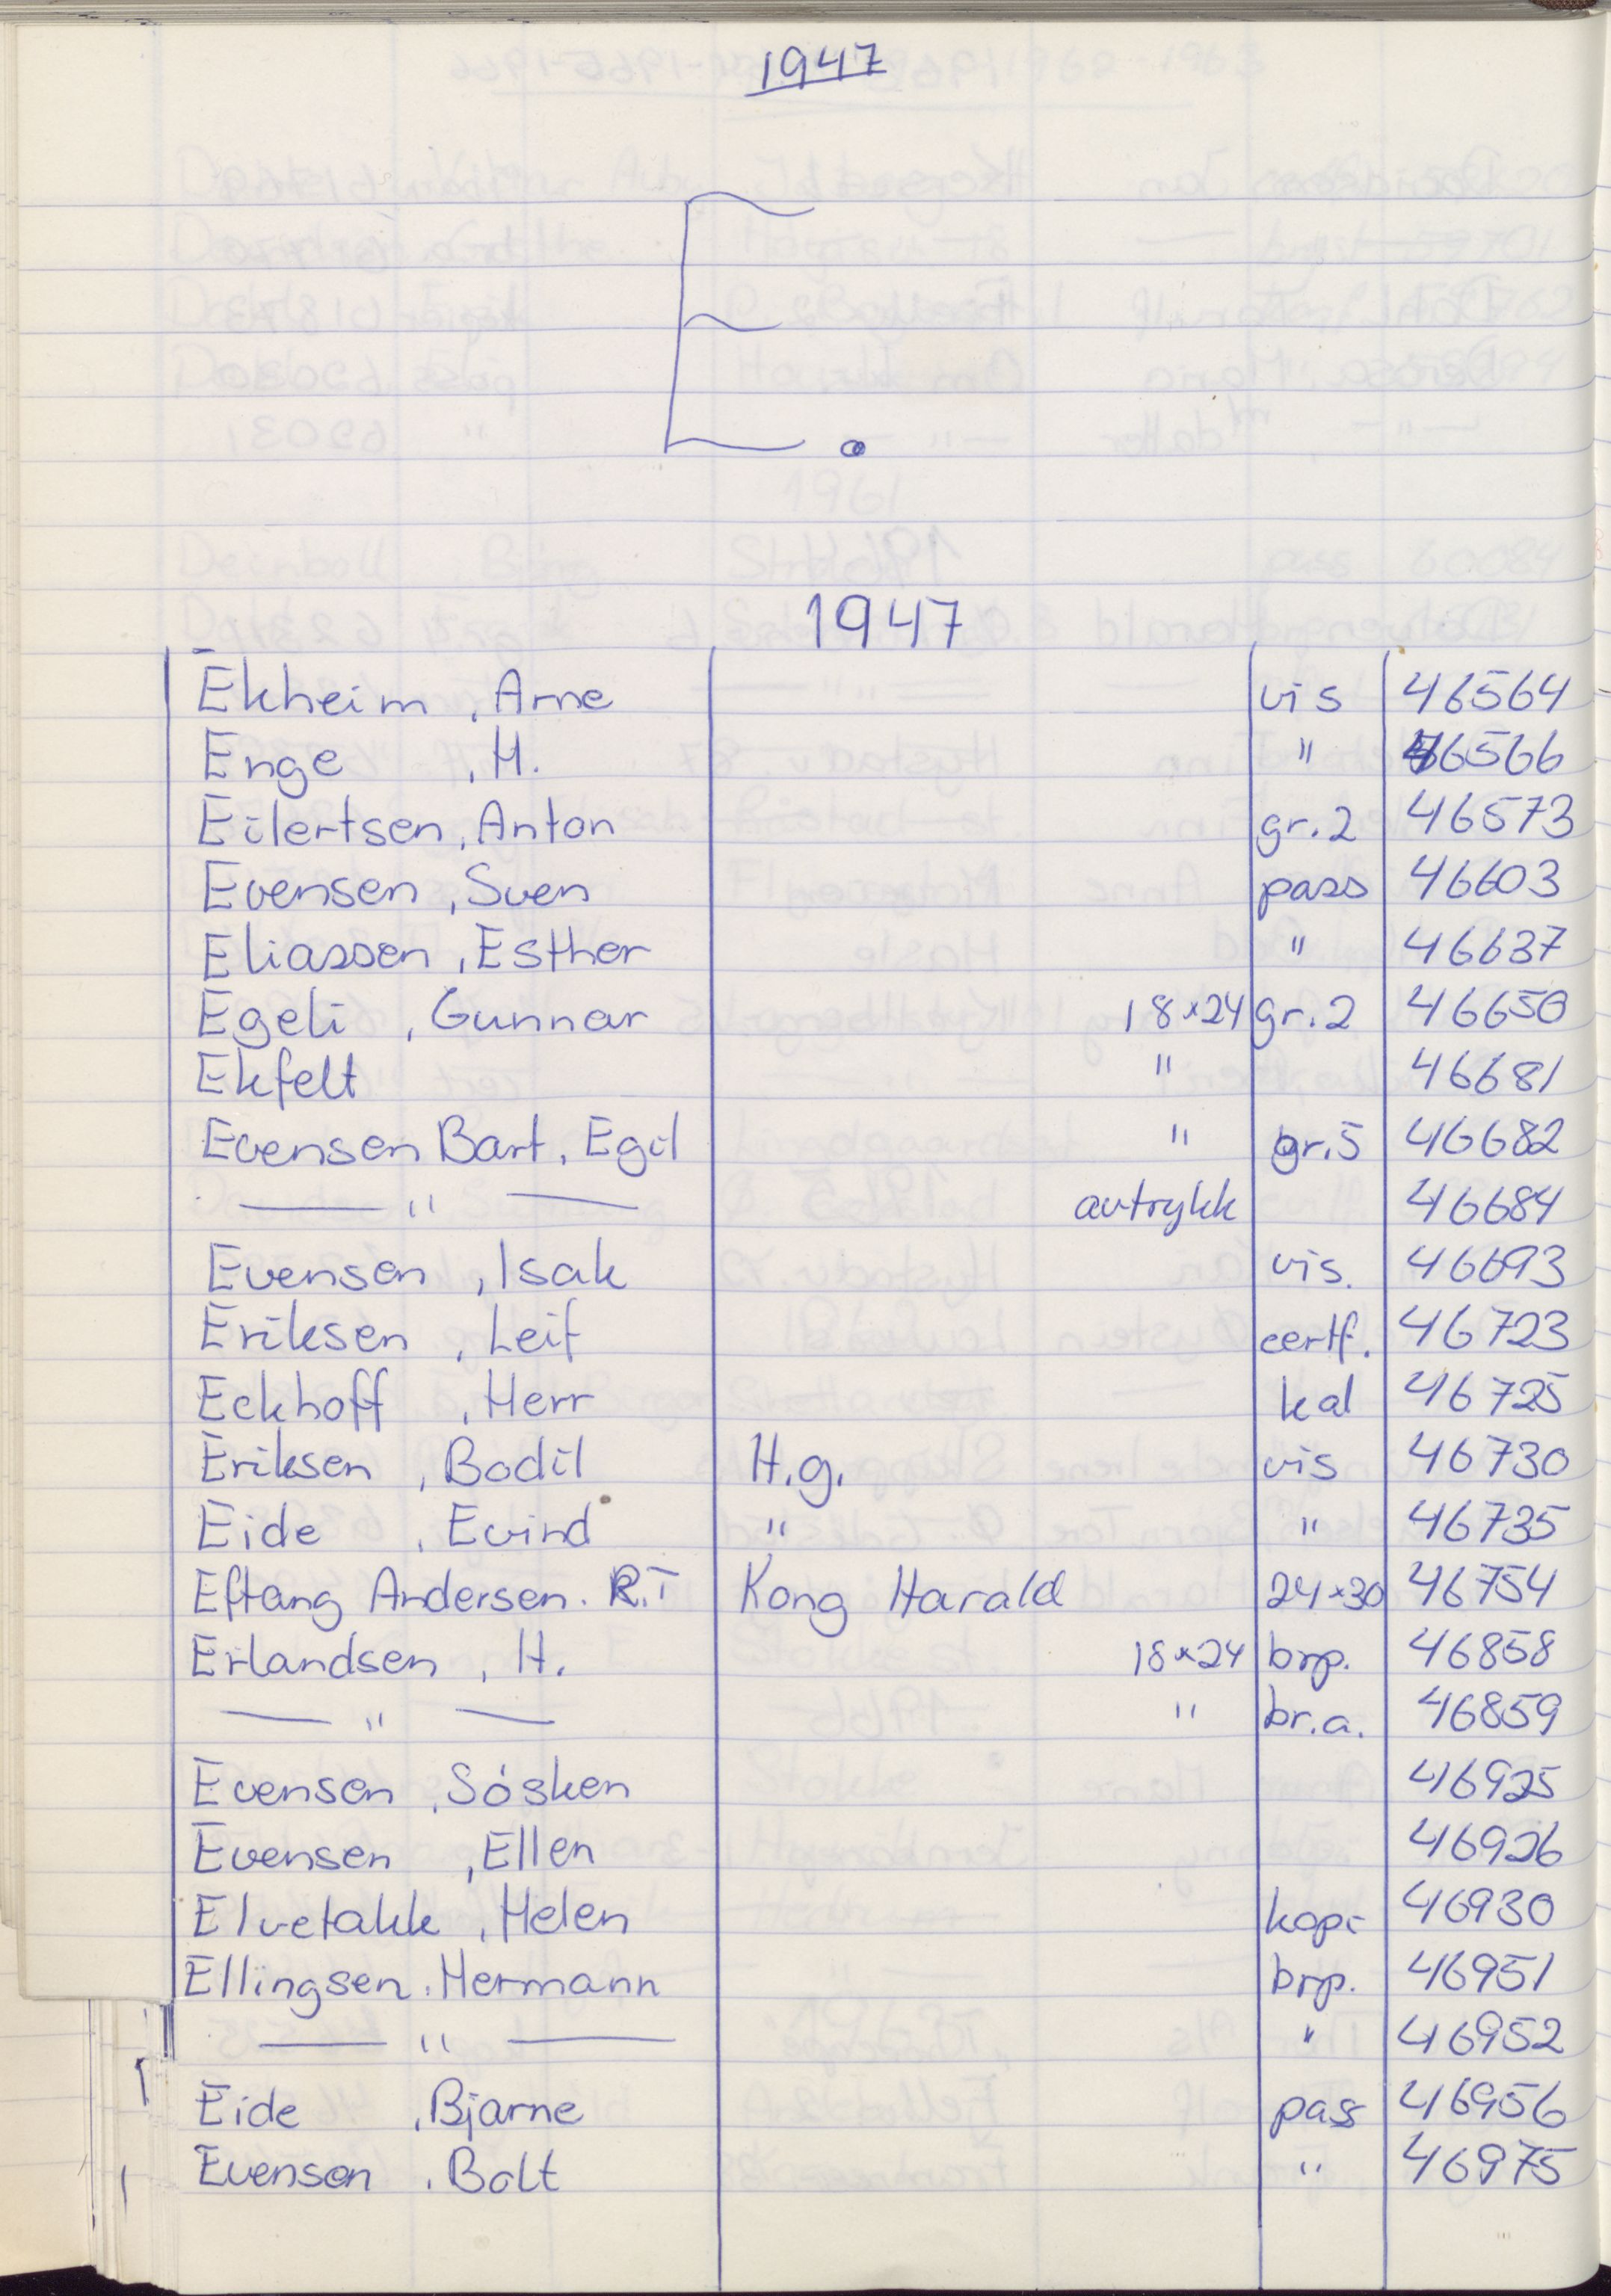 1947
E.
1947
Ekheim, Arne vis 46564
Enge, H. " 46566
Eilertsen, Anton gr.2 46573
Evensen, Sven pass 46603
Eliassen, Esther " 46637
Egeli, Gunnar 18x24 gr.2 46650
Ekfelt " 46681
Evensen Bart, Egil " gr.5 46682
— " — avtrykk 46684
Evensen, Isak vis. 46693
Eriksen, Leif certf. 46723
Eckhoff, Herr kal 46725
Eriksen, Bodil H.g. vis 46730
Eide, Evind " " 46735
Eftang Andersen. R.T Kong Harald 24x30 46754
Erlandsen, H. 18x24 brp. 46858
— " — " br.a. 46859
Evensen, Sósken 46925
Evensen, Ellen 46926
Elvetakk, Helen kopi 46930
Ellingsen, Hermann brp. 46951
— " — " 46952
Eide, Bjarne pass 46956
Evensen, Bolt " 46975